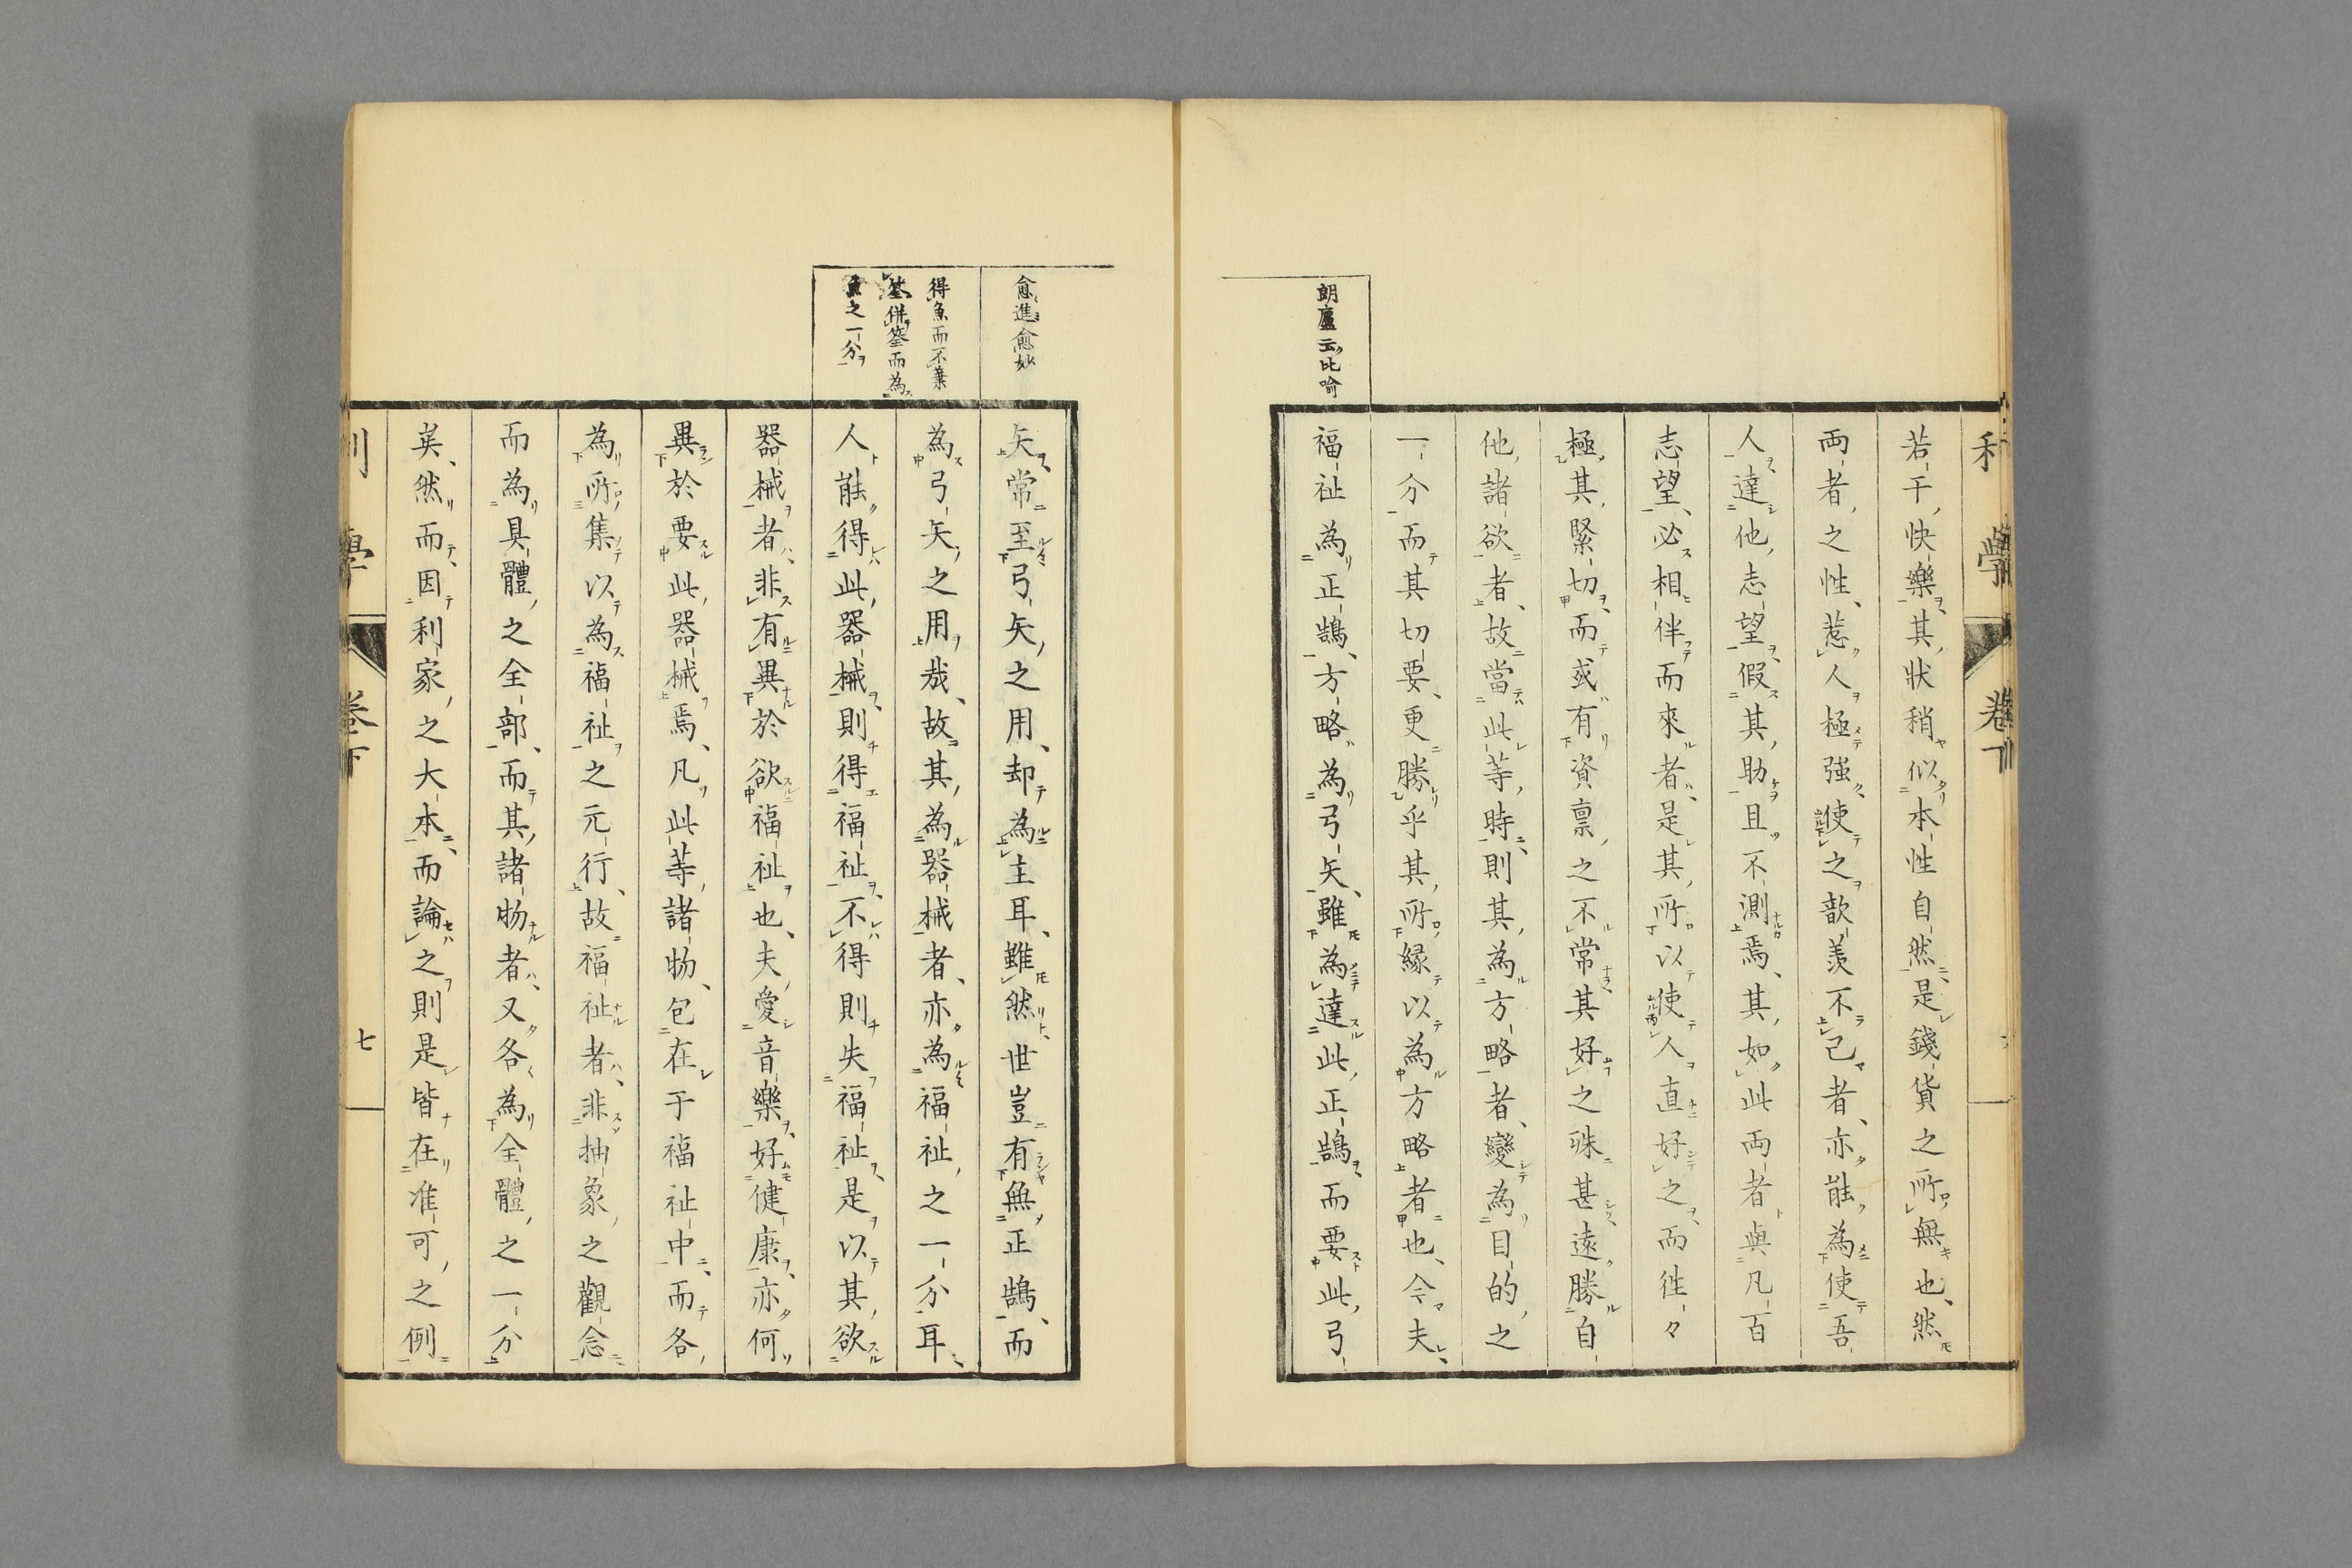 若干快樂其狀稍似本性自然是錢貨之所無也、然
両者之性、惹人極強、使之歆羨不已者、亦能為使吾
人達他志望、假其助且不測焉、其如此両者與凡百
志望、必相伴而來者、是其所以使人直好之而徃々
極其緊切、而或有資禀之不常其好之殊甚遠勝自
他諸欲者、故當此等時、則其為方略者、變為目的之
一分而其切要、更勝乎其所縁以為方略者也、今夫
福祉為正鵠、方略為弓矢、雖為達此正鵠而要此弓
朗廬云比喻
矢常至弓矢之用、却為主耳、雖然世豈有無正鵠、而
為弓矢之用哉、故其為器械者、亦為福祉之一分耳
人能得此器械、則得福祉、不得則失福祉、是以其欲
器械者、非有異於欲福祉也、夫愛音樂、好健康、亦何
異於要此器械焉、凡此等諸物、包在于福祉中、而各
為所集以為福祉之元行、故福祉者、非抽象之觀念
而為具體之全部、而其諸物者、又各為全體之一分
矣、然而因利家之大本、而論之則是皆在准可之例
愈進愈妙
得魚而不棄
筌併筌而為
魚之一分
利學
卷下
七